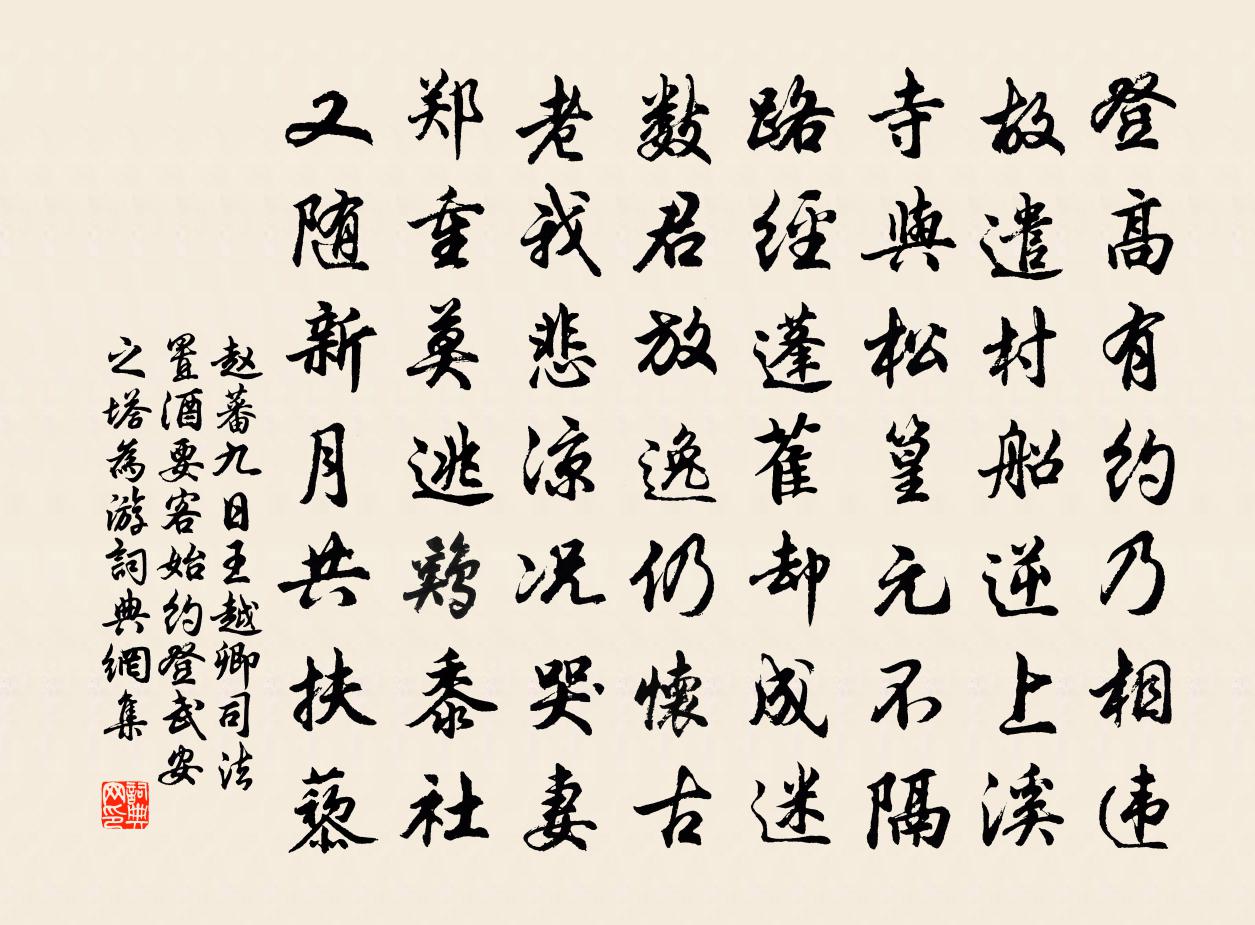 登高有约乃相违
故遣村船逆上溪
寺與松篁元不隔
路經蓬藋却成迷
数君放逸仍懷古
老我悲凉况哭妻
郑重莫逃鷄黍社
又随新月共扶藜
赵蕃九日王越卿司法
置酒要客始约登武安
之塔為游詞典網集
詞典网印